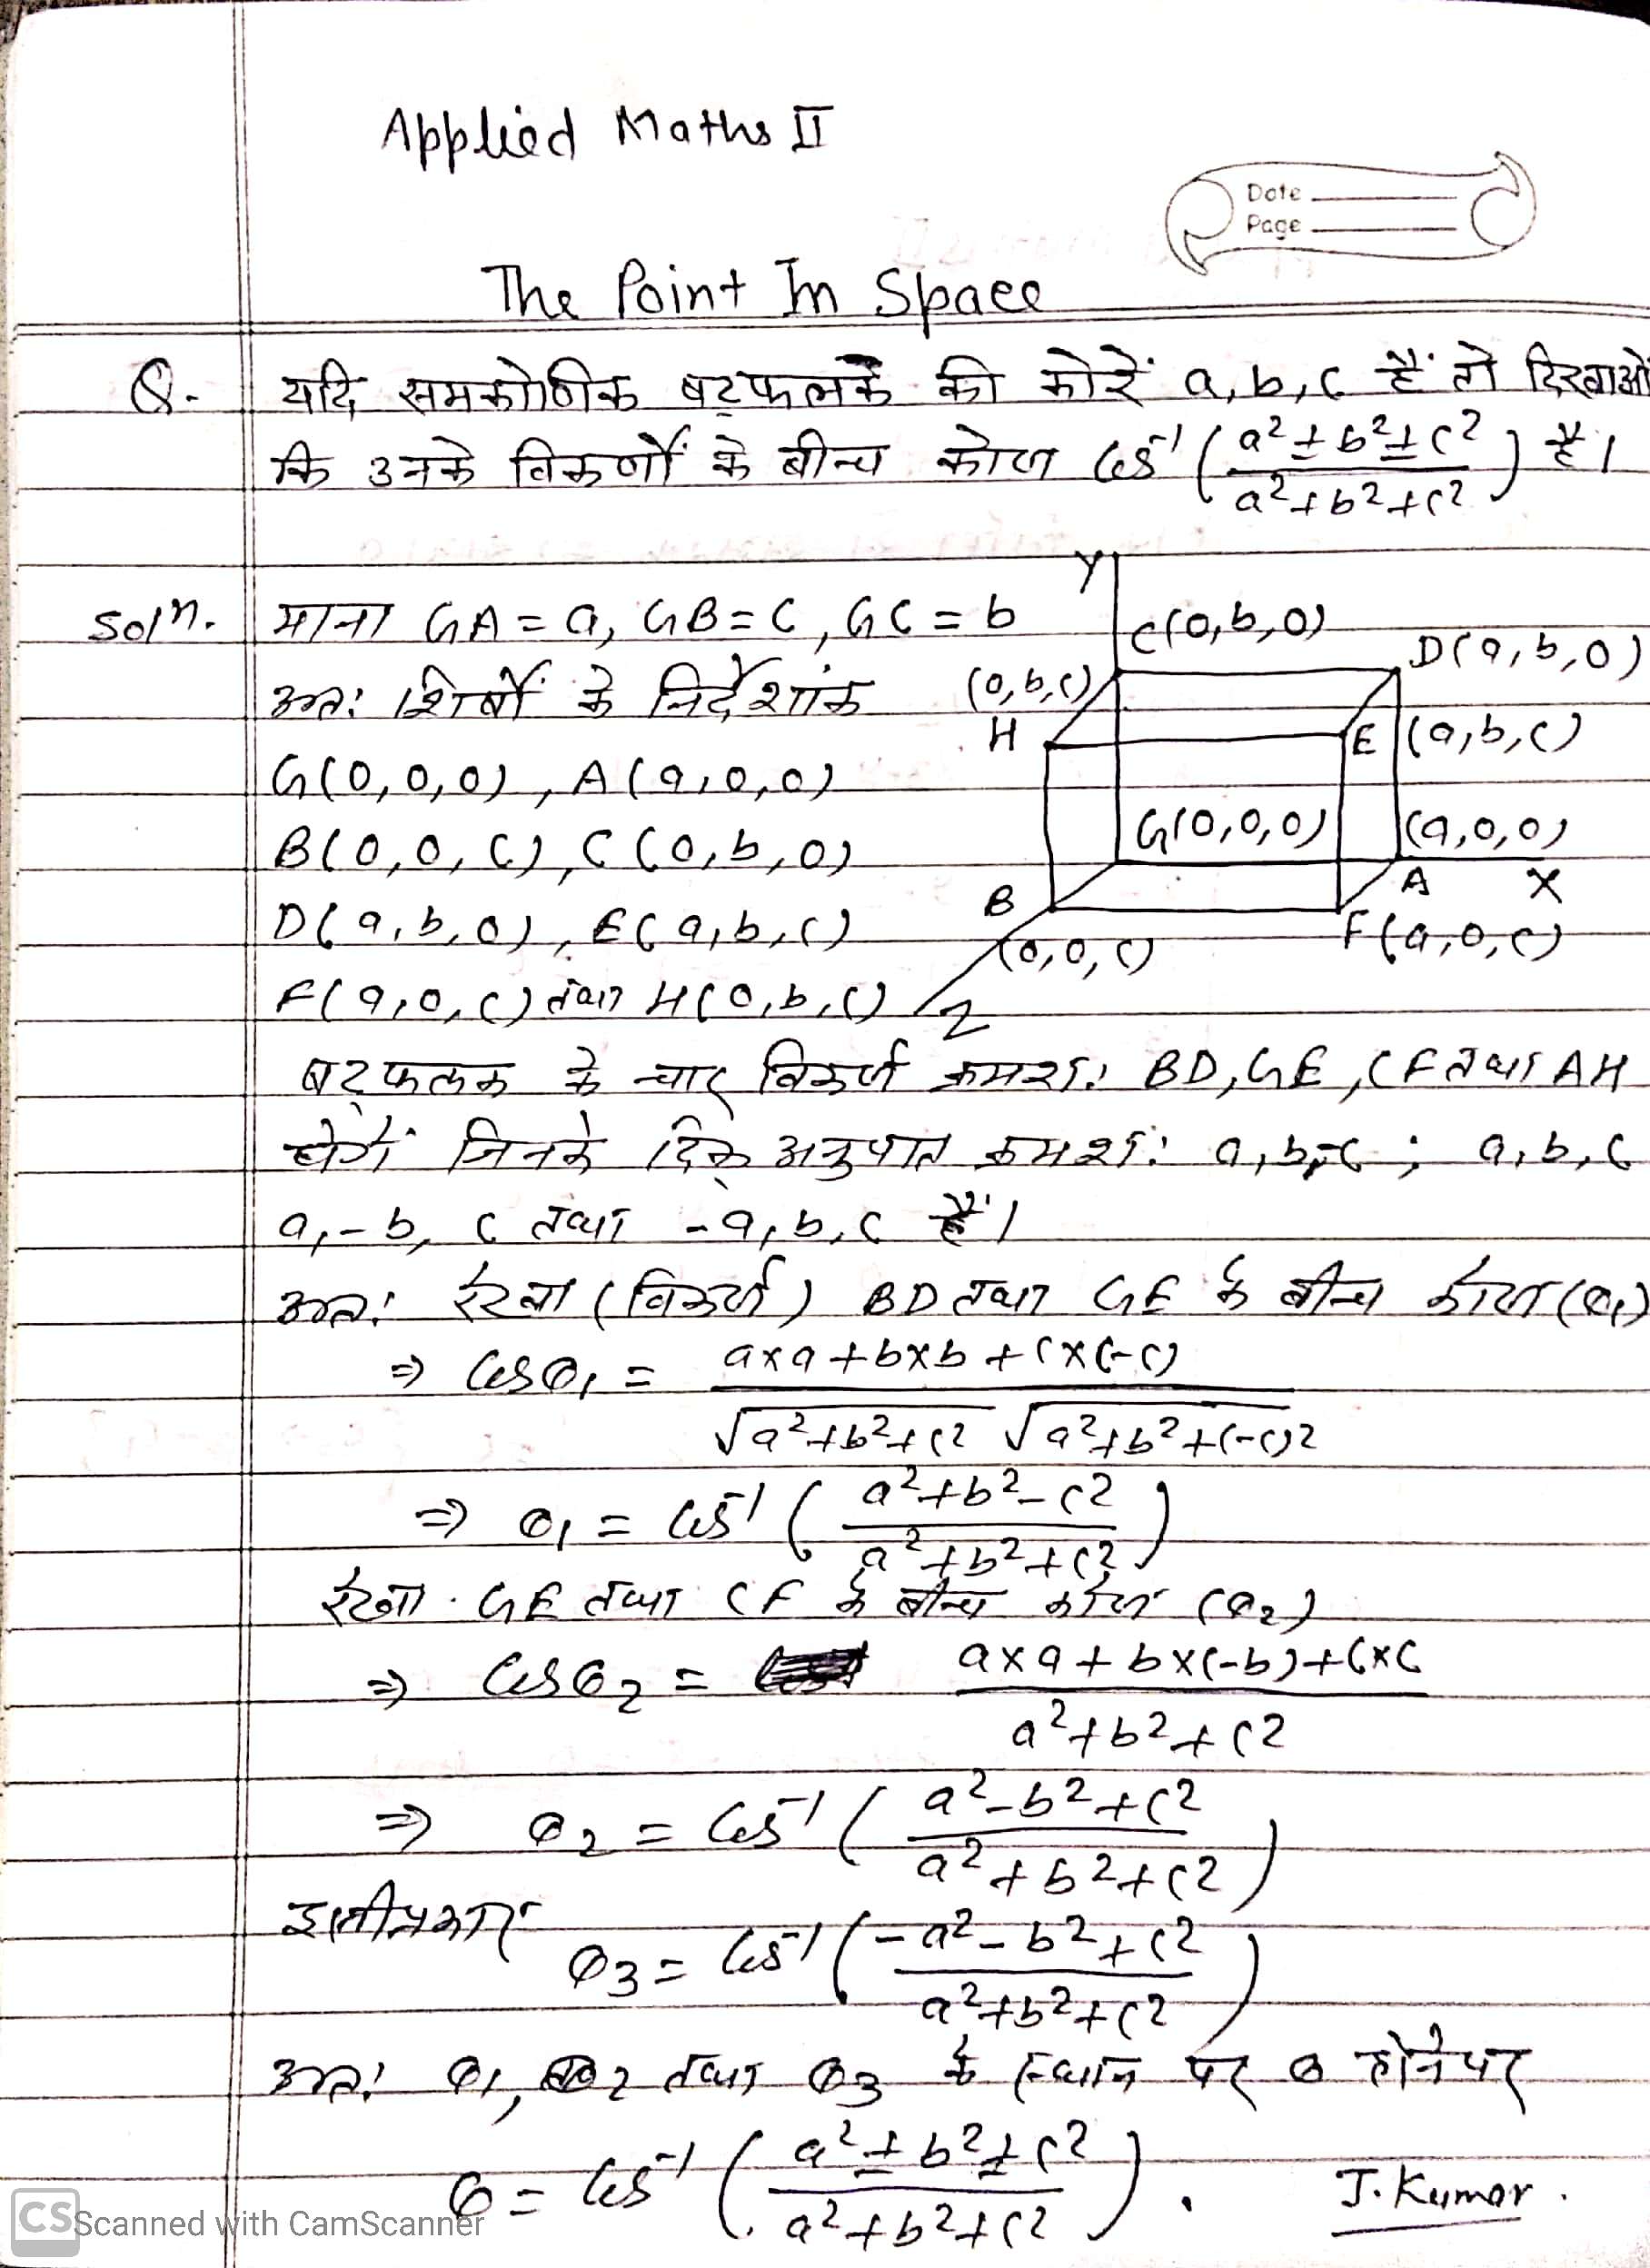 Applied Maths II
Date
Page
The Point In Space
Q. यदि समकोणिक षट्फलक की कोरें a, b, c हैं तो दिखाओ
कि उनके विकर्णों के बीच कोण Cos⁻¹ ( a² ± b² ± c² / a² + b² + c² ) है।
Solⁿ. माना GA = a, GB = c, GC = b
अतः शिर्षों के निर्देशांक
G(0,0,0), A(a,0,0)
B(0,0,c), C(0,b,0)
D(a,b,0), E(a,b,c)
F(a,0,c) तथा H(0,b,c)
Y
C(0,b,0)
D(a,b,0)
(0,b,c)
H
E (a,b,c)
G(0,0,0)
(a,0,0)
A X
B
(0,0,c)
F(a,0,c)
Z
षट्फलक के चार विकर्ण क्रमशः BD, GE, CF तथा AH
होगें जिनके दिक् अनुपात क्रमशः a, b, -c ; a, b, c
a, -b, c तथा -a, b, c हैं।
अतः रेखा (विकर्ण) BD तथा GE के बीच कोण (θ₁)
⇒ Cosθ₁ = a×a + b×b + c×(-c) / √a²+b²+c² √a²+b²+(-c)²
⇒ θ₁ = Cos⁻¹ ( a²+b²-c² / a²+b²+c² )
रेखा GE तथा CF के बीच कोण (θ₂)
⇒ Cosθ₂ = a×a + b×(-b) + c×c / a²+b²+c²
⇒ θ₂ = Cos⁻¹ ( a²-b²+c² / a²+b²+c² )
इसीप्रकार
θ₃ = Cos⁻¹ ( -a²-b²+c² / a²+b²+c² )
अतः θ₁, θ₂ तथा θ₃ के स्थान पर θ होने पर
θ = Cos⁻¹ ( a² ± b² ± c² / a²+b²+c² ).
J. Kumar.
CS Scanned with CamScanner